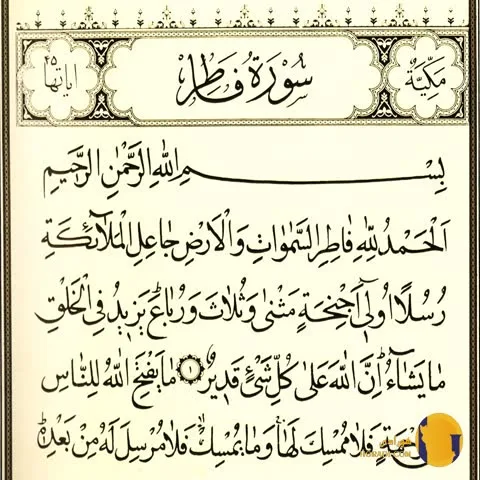 مَكِّيَّةٌ سُورَةُ فَاطِرٍ اٰيَاتُهَا ٤٥
بِسْمِ اللّٰهِ الرَّحْمٰنِ الرَّحِيمِ
اَلْحَمْدُ لِلّٰهِ فَاطِرِ السَّمٰوَاتِ وَالْاَرْضِ جَاعِلِ الْمَلَآئِكَةِ
رُسُلًا اُو۬لٓى اَجْنِحَةٍ مَثْنٰى وَثُلَاثَ وَرُبَاعَ يَز۪يدُ فِي الْخَلْقِ
مَا يَشَآءُ اِنَّ اللّٰهَ عَلٰى كُلِّ شَيْءٍ قَد۪يرٌ ١ مَا يَفْتَحِ اللّٰهُ لِلنَّاسِ
فَلَا مُمْسِكَ لَهَا وَمَا يُمْسِكْ فَلَا مُرْسِلَ لَهُ مِنْ بَعْدِه۪